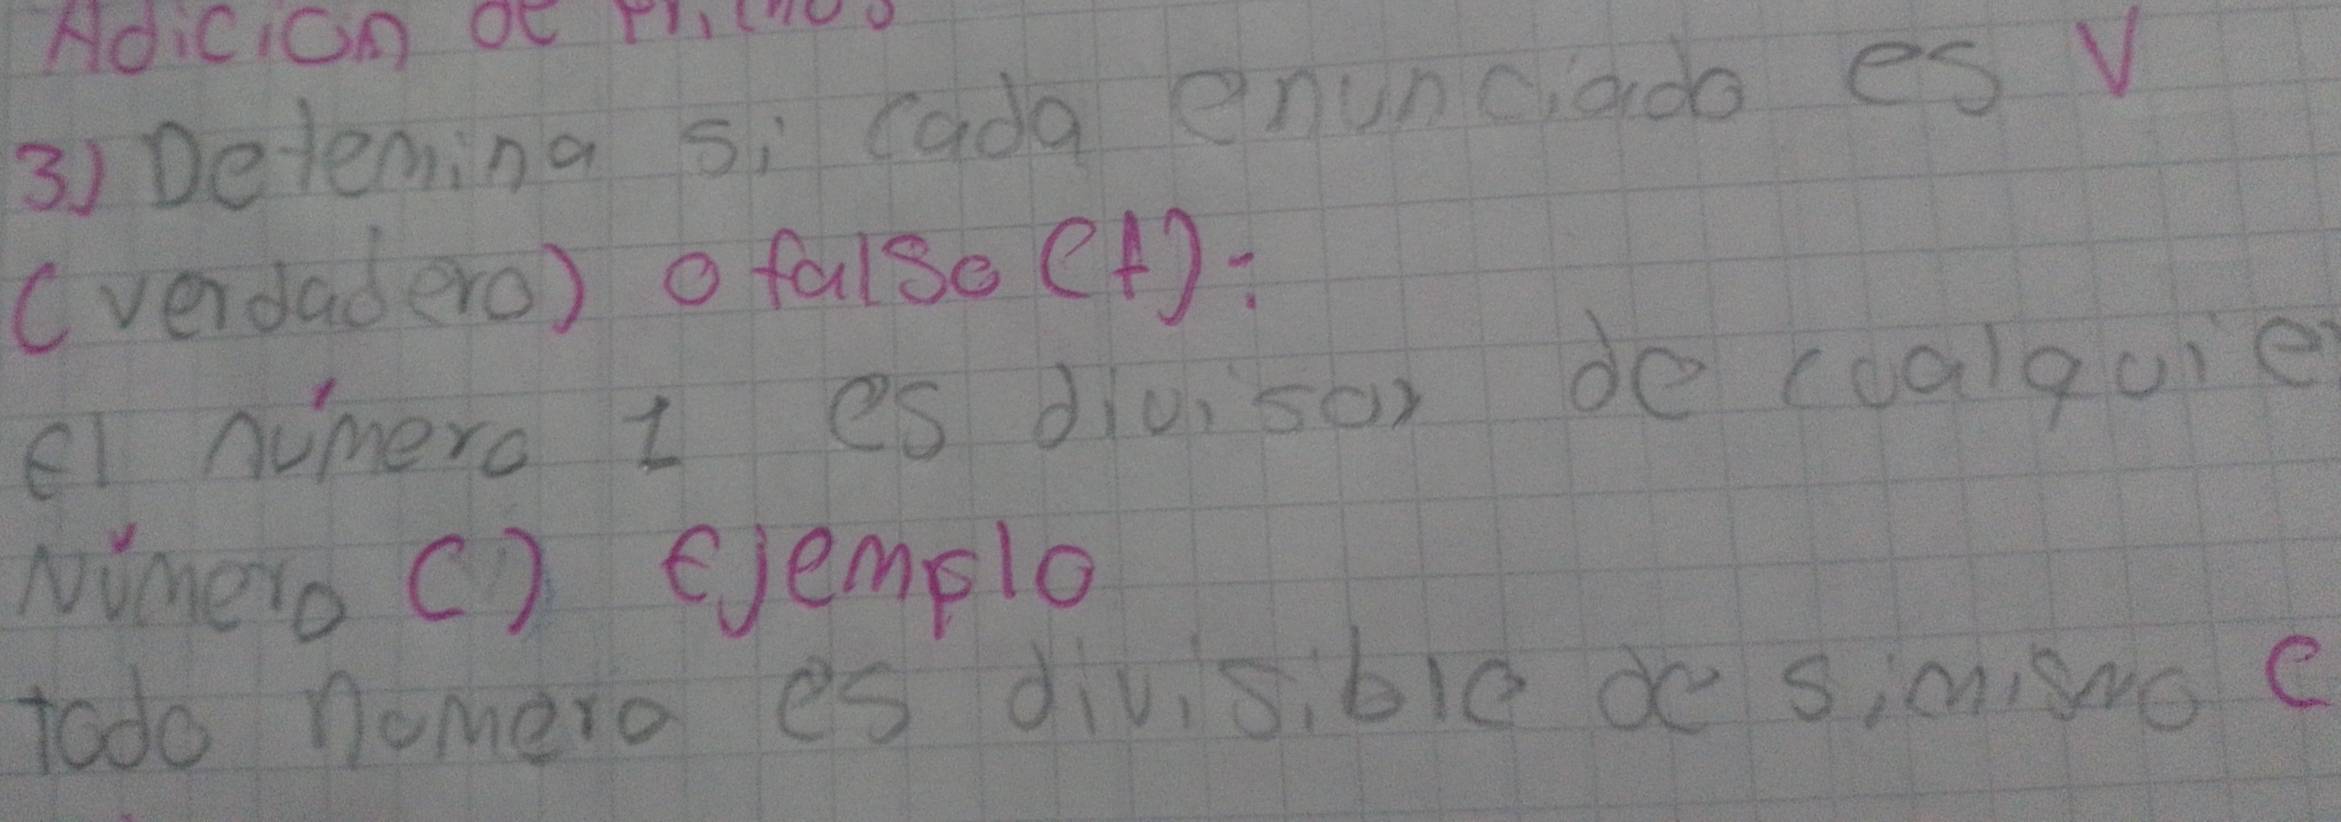 Adición de
3) Detemina si cada enunciado es V
(verdadero) o falso (f):
El número 1 es divisor de cualquier
Número () Ejemplo
Todo nomero es divisible de si mismo (